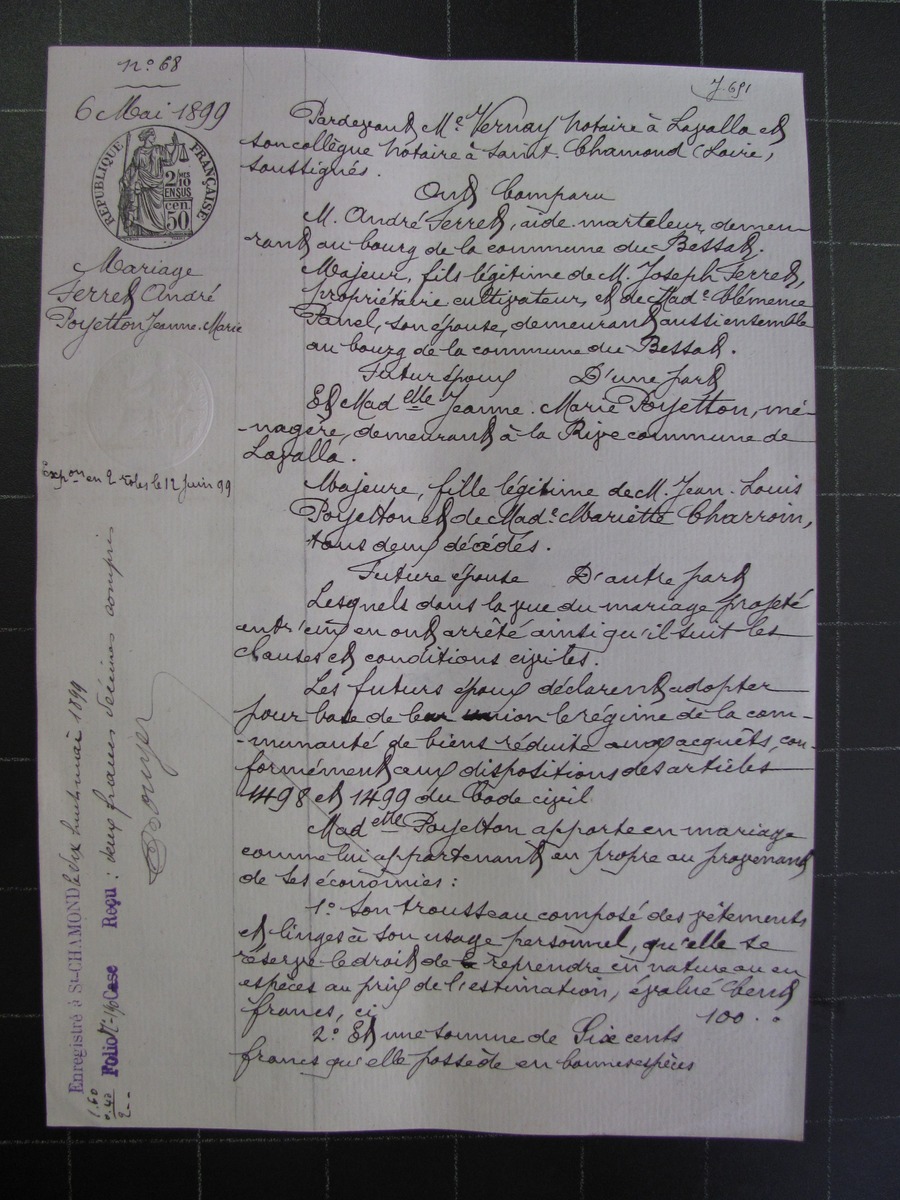 n° 68
6 Mai 1899
RÉPUBLIQUE FRANÇAISE
2/10 EN SUS
50 cen
Mariage
Ferret André
Poyetton Jeanne-Marie
Exp^on en 2 rôles le 12 juin 99
Enregistré à St-CHAMOND le dix huit mai 1899
Folio Case
Reçu : deux francs décimes compris
1.60
0.40
2--
J. 691
Pardevant M^e Vernay notaire à Lavalla et
son collègue notaire à Saint-Chamond (Loire),
soussignés.
Ont Comparu
M. André Ferret, aide-marteleur, demeu-
rant au bourg de la commune du Bessat.
Majeur, fils légitime de M. Joseph Ferret,
propriétaire cultivateur, et de Mad^e Clémence
Panel, son épouse, demeurant aussi ensemble
au bourg de la commune du Bessat.
Futur époux D'une part
Et Mad^elle Jeanne-Marie Poyetton, mé-
-nagère, demeurant à la Rive commune de
Lavalla.
Majeure, fille légitime de M. Jean-Louis
Poyetton et de Mad^e Mariette Charroin,
tous deux décédés.
Future épouse D'autre part
Lesquels dans la vue du mariage projeté
entr'eux en ont arrêté ainsi qu'il suit les
clauses et conditions civiles.
Les futurs époux déclarent adopter
pour base de leur union le régime de la com-
-munauté de biens réduite aux acquêts, con-
formément aux dispositions des articles
1498 et 1499 du Code civil
Mad^elle Poyetton apporte en mariage
comme lui appartenant en propre au provenant
de ses économies :
1° Son trousseau composé des vêtements
et linges à son usage personnel, qu'elle se
réserve le droit de reprendre en nature ou en
espèces au prix de l'estimation, évalué Cent
francs, ci 100 "
2° Et une somme de Six cents
francs qu'elle possède en bonnes espèces